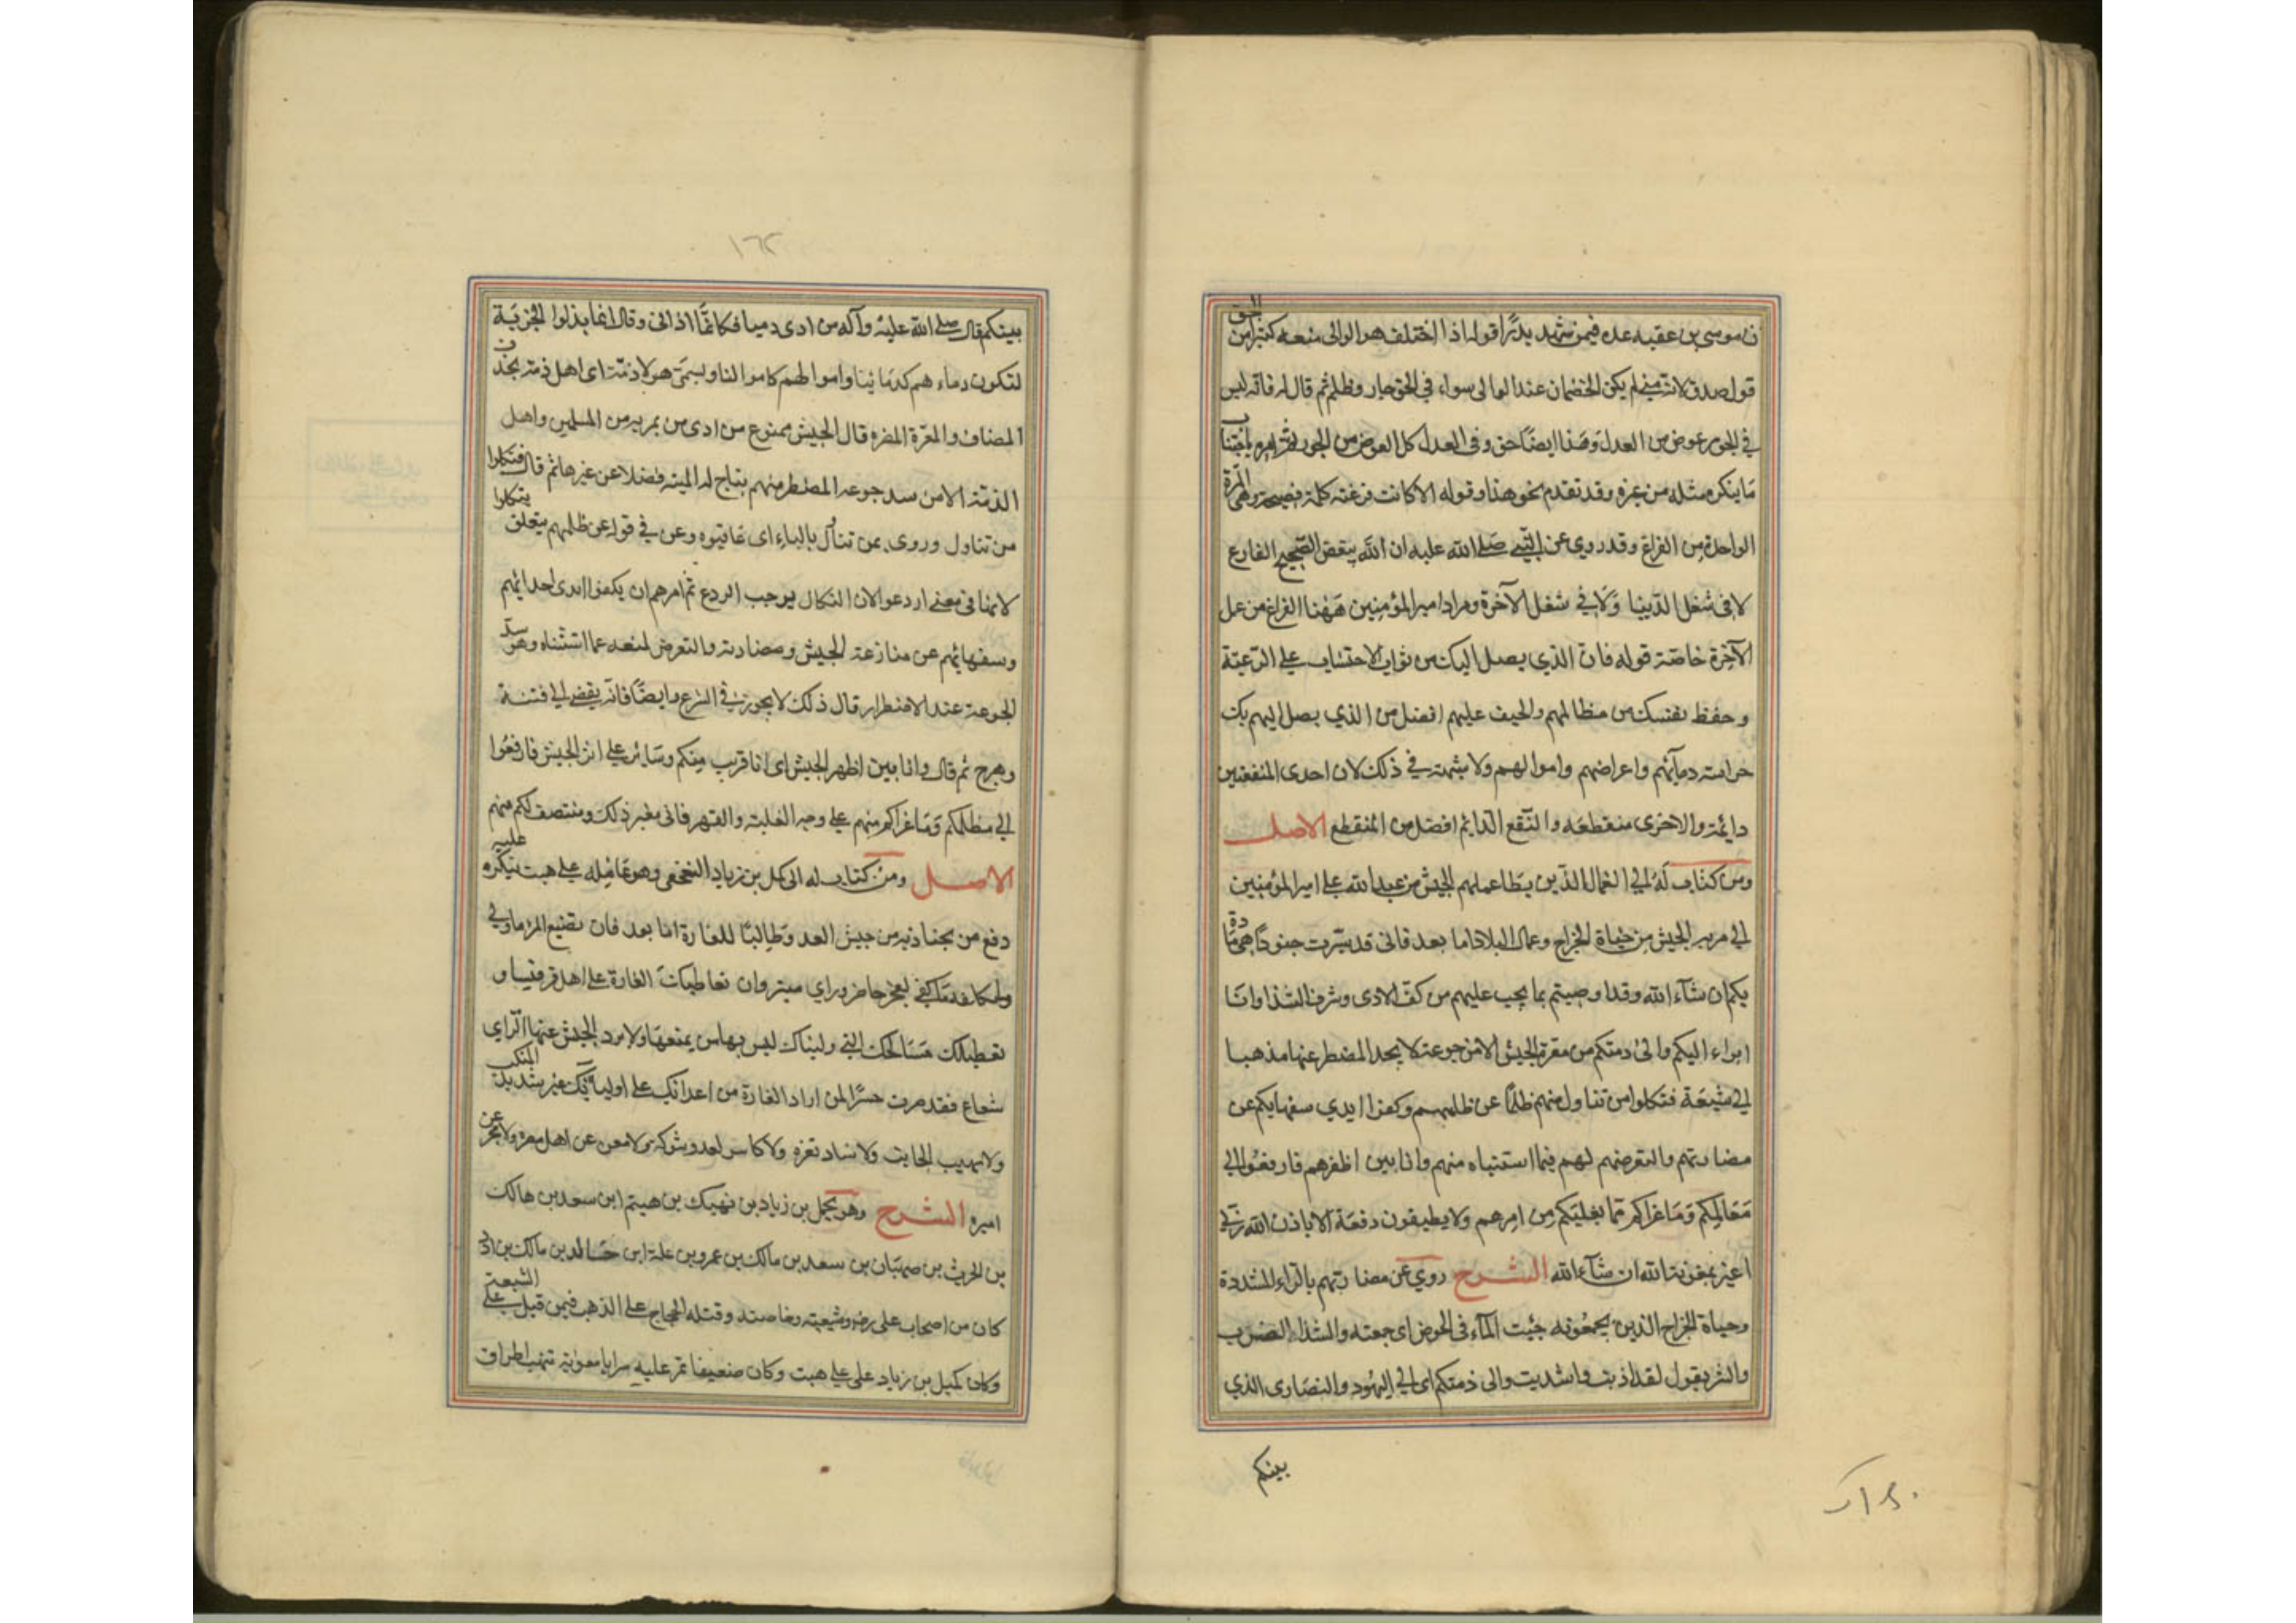 ن موسى بن عقبه عده فيمن شهد بدرًا قوله اذا اختلف هوا لوالى منعه كثيرا من الحق
قول صدق لانه متى لم يكن الخصمان عند الوالى سواء فى الحق جار وظلم ثم قال له فانه ليس
فى الجور عوض من العدل وهذا ايضًا حق وفى العدل كل العوض من الجور ثم امره باجتناب
ما ينكره مثله من غيره وقد تقدم نحو هذا وقوله الا كانت فرغته كلمة فصيحة وهى المرة
الواحدة من الفراغ وقد روى عن النبى صلى الله عليه ان الله يبغض الصحيح الفارغ
لا فى شغل الدنيا ولا فى شغل الآخرة ومراد امير المؤمنين ههنا الفراغ من عمل
الآخرة خاصّة قوله فان الذي يصل اليك من ثواب الاحتساب على الرّعيّة
وحفظ نفسك من مظالمهم والحيف عليهم افضل من الذي يصل اليهم بك
حراسة دمآئهم واعراضهم واموالهم ولا شبهة في ذلك لان احدى المنفعتين
دائمة والاخرى منقطعه والنفع الدّايم افضل من المنقطع الاصل
ومن كتاب لَهُ الى العمال الذين يطا عملهم الجيش من عبد الله على امير المؤمنين
الى من مر به الجيش من جباة الخراج وعمال البلاد اما بعد فانى قد سيّرت جنودًا هى مارّة
بكم ان شآء الله وقد اوصيتهم بما يجب عليهم من كفّ الاذى وصرف الشذا وانا
ابراء اليكم والى ذمتكم من معرة الجيش الا من جوعة لا يجد المضطر عنها مذهبا
الى شبعة فنكلوا من تناول منهم ظلمًا عن ظلمهم وكفوا ايدي سفهايكم عن
مضارتهم والتعرض لهم فيما استثنياه منهم وانا بين اظهرهم فارفعوا الى
مَظالمكم وَمَا عراكم مما يغلبكم من امرهم ولا يطيقون دفعه الا بالله وبى
اغيره بمعونة الله ان شآء الله الشرح روي عن مضارتهم بالرّاء المشددة
وجباة الخراج الذين يجمعونه جبيت المآء فى الحوض اى جمعته والشذا الضرب
والشر يقول لقد اذيت واشذيت والى ذمتكم اى الى اليهود والنصارى الذي
بينكم
١٦٢
بينكم قال صلى الله عليه وآله من اذى ذميا فكانمّا اذانى وقال انما بذلوا الجزيَة
لتكون دماءهم كدمائنا واموالهم كاموالنا ويسمى هولاء ذمّة اى اهل ذمة بحذف
المضاف والمعرّة المضره قال الجيش ممنوع من اذى من يمر به من المسلمين واهل
الذمّة الا من سد جوعه المضطر منهم يباح له الميته فضلا عن غيرها ثم قال فنكلوا
من تناول وروى بمن تناول بالباء اى عاقبوه وعن في قوله عن ظلمهم يتعلق بنكلوا
لانها فى معنى اردعوا لان النكال يوجب الردع ثم امرهم ان يكفوا ايدى احداثهم
وسفهائهم عن منازعة الجيش ومضادته والتعرض لمنعه عما استثناه وهو سدّ
الجوعة عند الاضطرار قال ذلك لا يجوز فى الشرع وايضًا فانه يفضى الى فتنة
وهرج ثم قال وانا بين اظهر الجيش اى انا قريب منكم وسَائر على اثر الجيش فارفعُوا
الى مظالمكم وَمَا عراكم منهم على وجه الغلبة والقهر فانى مغير ذلك ومنتصف لكم منهم
الاصل ومن كتاب له الى كميل بن زياد النخعى وهو عَامِله على هيت ينكر عليه
دفع من يجتاز به من جيش العدو طالبًا للغارة اما بعد فان تضييع المرء ما ولى
وتكلفه ما كفى لعجز حاضر وراي متبر وان تعاطيك الغارة على اهل قرقيسيا و
تعطيلك مَسَالحك التى وليناك ليس بها من يمنعها ولا يرد الجيش عنها لراى
شعاع فقد صرت جسرًا لمن اراد الغارة من اعدائك على اوليائك غير شديد المنكب
ولا مهيب الجانب ولا ساد ثغره ولا كاسر لعدو شوكة ولا مغن عن اهل مصره ولا مجز عن
اميره الشرح وهو كميل بن زياد بن نهيك بن هيثم ابن سعد بن مالك
بن الحرث بن صهبَان بن سعد بن مالك بن عمرو بن علة ابن خَالد بن مالك بن اد
كان من اصحاب على رض وشيعته وخاصته وقتله الحجاج على المذهب فيمن قتل من الشيعة
وكان كميل بن زياد على على هيت وكان ضعيفا تمر عليه سرايا معوٰية تنهب اطراف